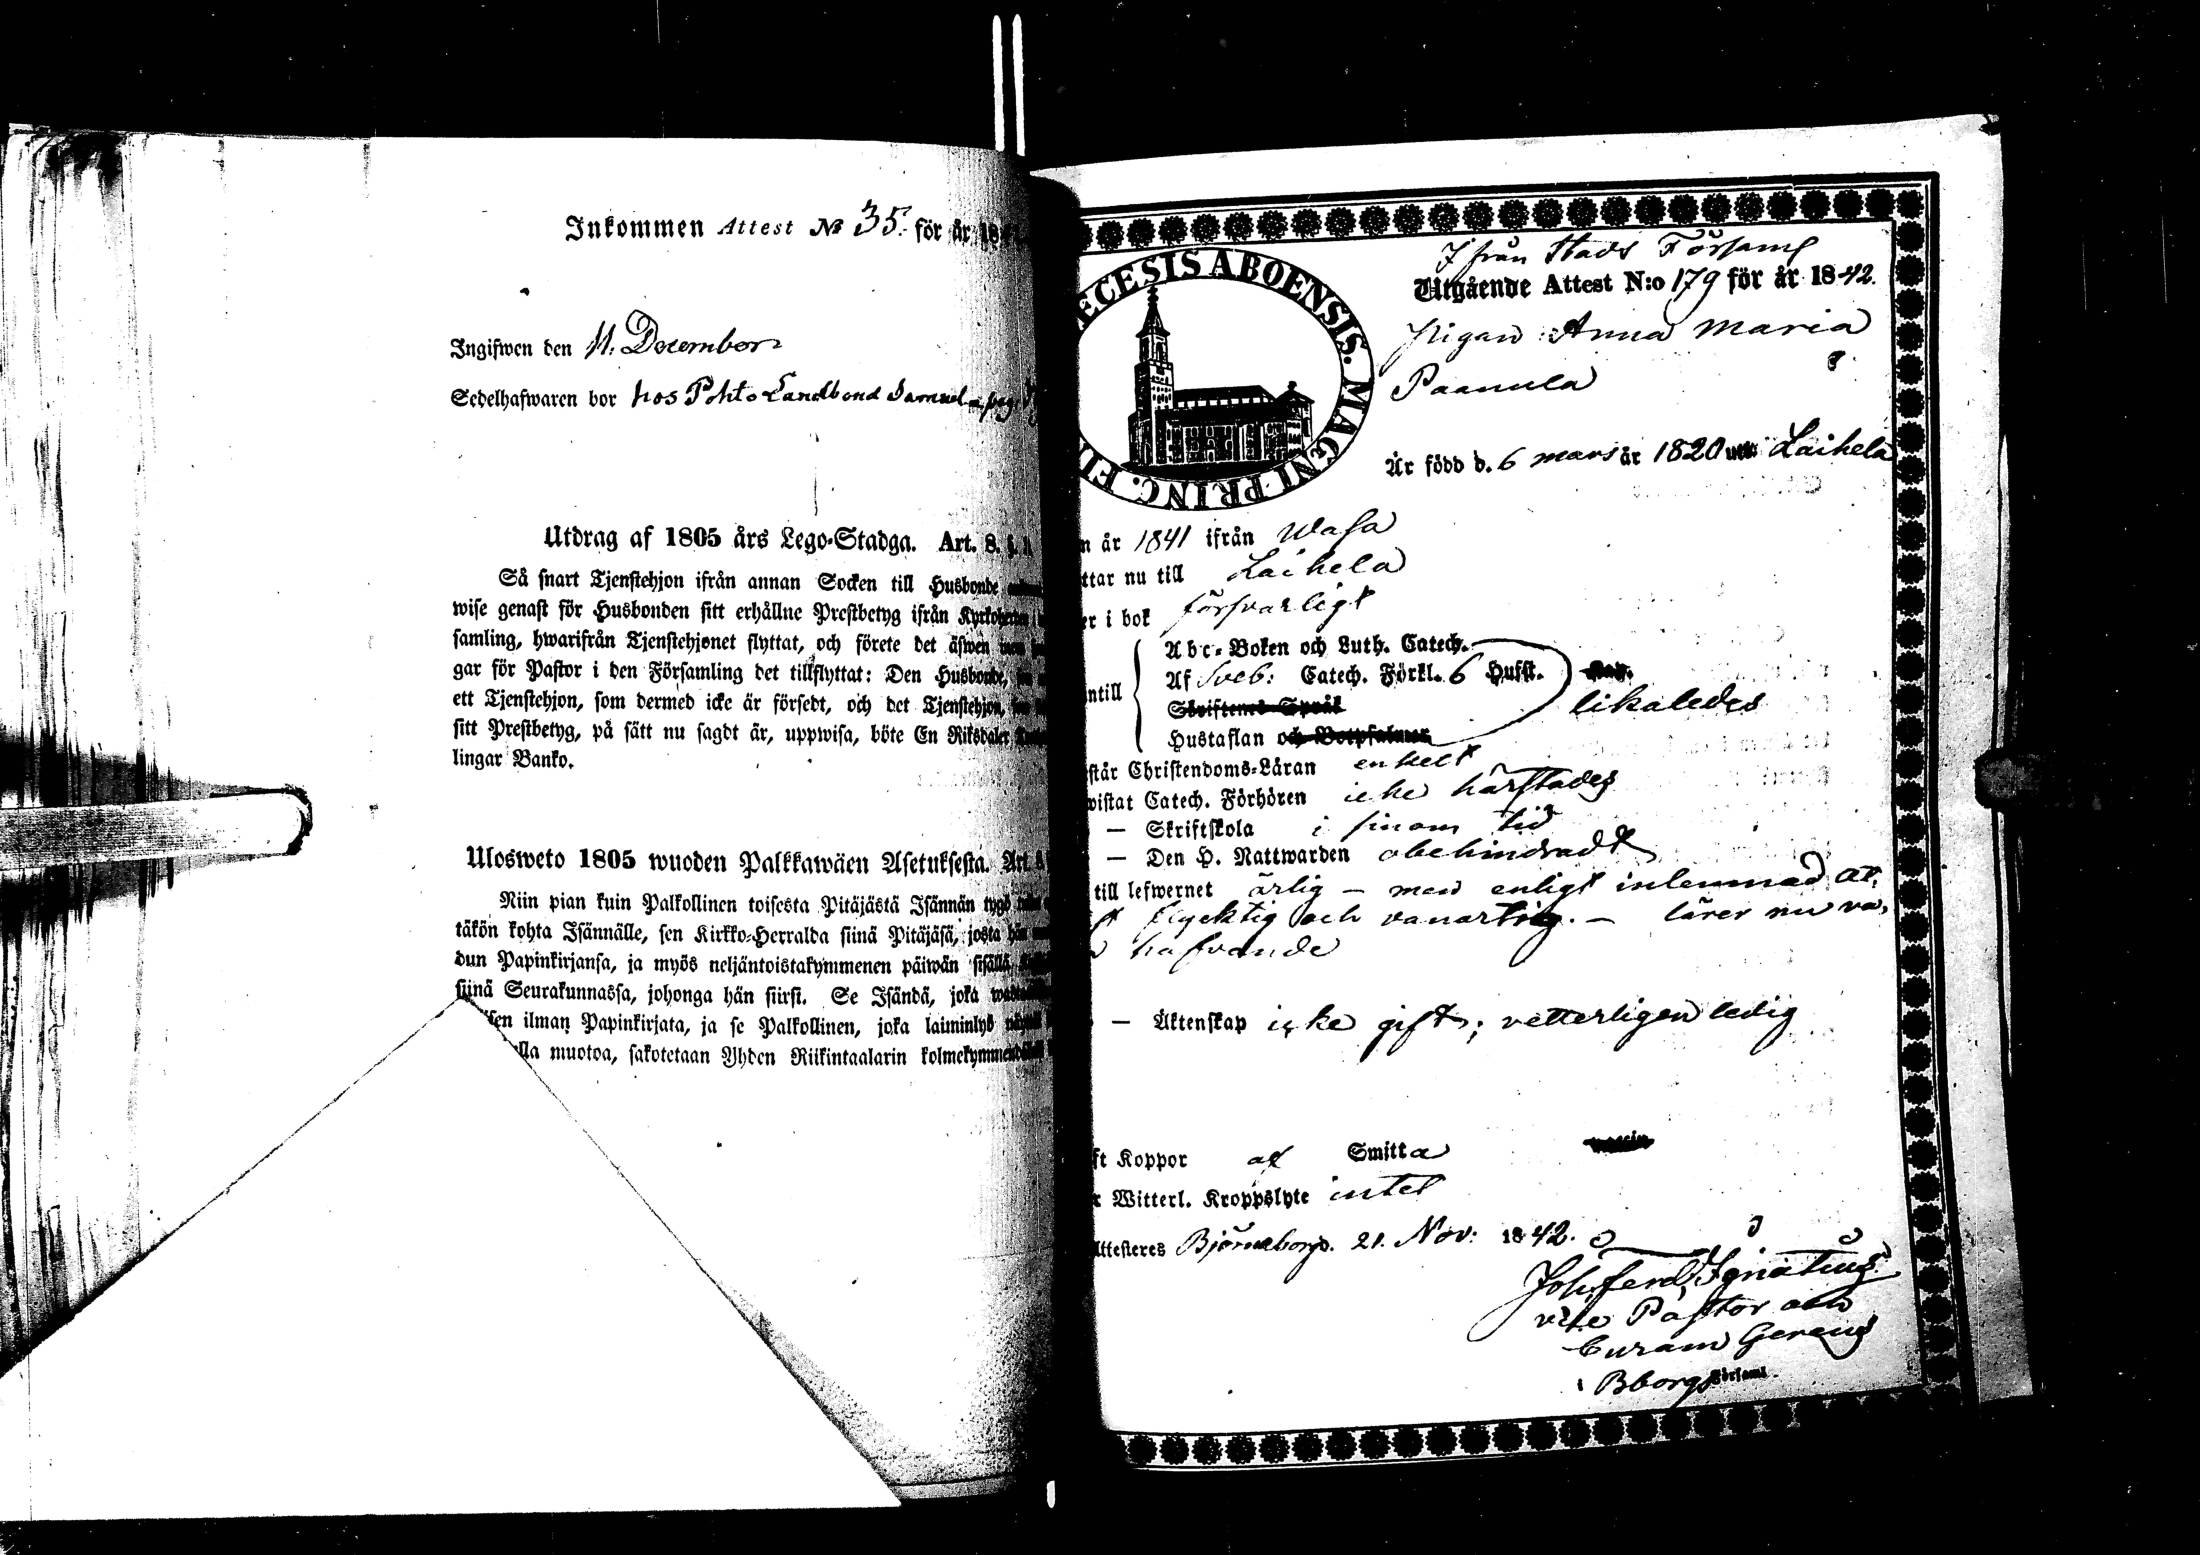 Inkommen Attest No 35. för år 18
Ingifwen den 11. December
Sedelhafwaren bor hos Pohto Landbond Samuel
Utdrag af 1805 års Lego-Stadga. Art. 8. §.
Så snart Tjenstehjon ifrån annan Socken till Husbonde
wise genast för Husbonden sitt erhållne Prestbetyg ifrån
samling, hwarifrån Tjenstehjonet flyttat, och förete det äfwen
gar för Pastor i den Församling det tillflyttat: Den Husbonde,
ett Tjenstehjon, som dermed icke är försedt, och det Tjenstehjon,
sitt Prestbetyg, på sätt nu sagdt är, uppwisa, böte En Riksdaler
lingar Banko.
Ulosweto 1805 wuoden Palkkawäen Asetuksesta. Art. 8.
Niin pian kuin Palkollinen toisesta Pitäjästä Isännän tygö
täkön kohta Isännälle, sen Kirkko-Herralda siinä Pitäjäsä, josta hän
dun Papinkirjansa, ja myös neljäntoistakymmenen päiwän sisällä
siinä Seurakunnassa, johonga hän siirsi. Se Isändä, joka
sen ilman Papinkirjata, ja se Palkollinen, joka laiminlyö
lla muotoa, sakotetaan Yhden Riikintaalarin
ECESIS ABOENSIS. MAGNI PRINC. FIN
Ifrån Stads Församl
Utgående Attest N:o 179 för år 1842.
Pigan Anna Maria
Paanula
År född d. 6 mars år 1820 uti Laihela
n år 1841 ifrån Wasa
ttar nu till Laihela
er i bok försvarligt
Abc-Boken och Luth. Catech.
ntill Af Sveb: Catech. Förkl. 6 Hufst.
Skriftenes Språk likaledes
Hustaflan och Botpsalmer
står Christendoms-Läran enkelt
wistat Catech. Förhören icke härstädes
— Skriftskola i sinom tid
— Den H. Nattwarden obehindradt
till lefwernet ärlig — men enligt inlemnad at,
t flycktig och vanartig. — lärer nu va,
hafvande
— Äktenskap icke gift; vetterligen ledig
ft Koppor af Smitta
r Witterl. Kroppslyte intet
Attesteres Björneborg d. 21. Nov: 1842.
Joh. Ferd. Ignatius
vice Pastor och
Curam Gerens
i Bborgs Församl.